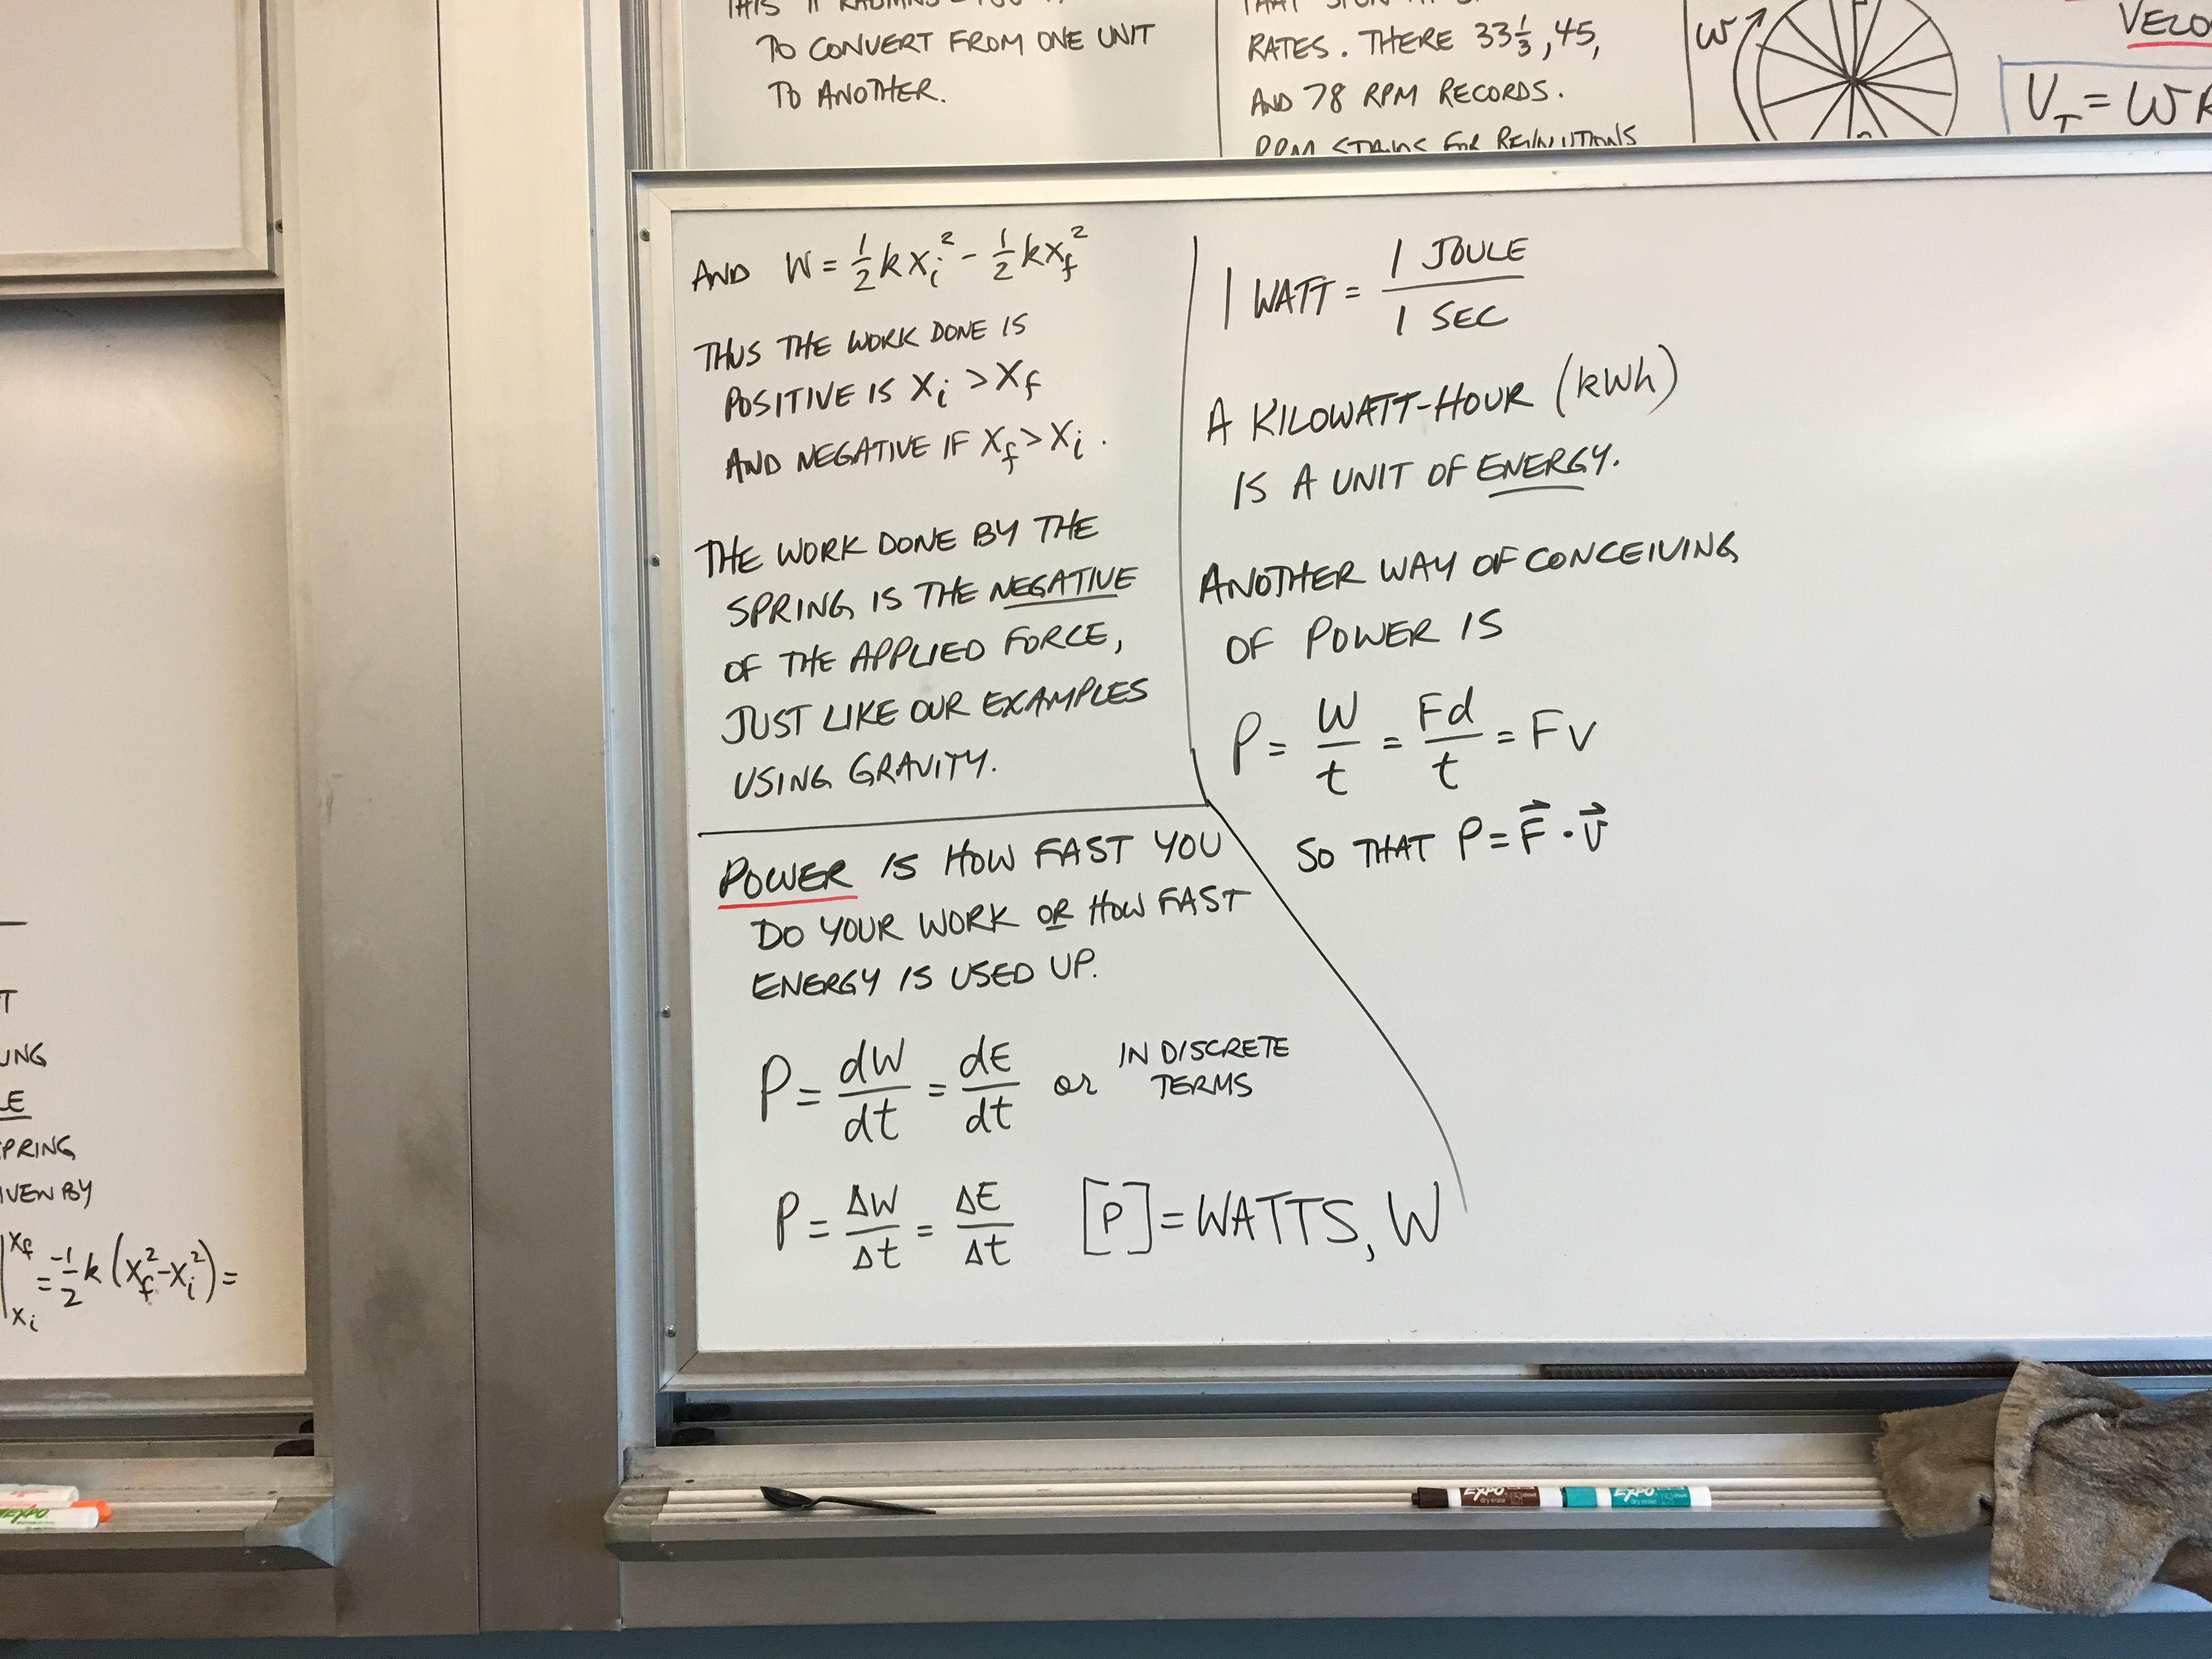 TO CONVERT FROM ONE UNIT
TO ANOTHER.
RATES. THERE 33⅓, 45,
AND 78 RPM RECORDS.
RPM STANDS FOR REVOLUTIONS
ω
VELO
V_T = ωR
AND W = ½kx_i² - ½kx_f²
THUS THE WORK DONE IS
POSITIVE IS x_i > x_f
AND NEGATIVE IF x_f > x_i.
THE WORK DONE BY THE
SPRING IS THE NEGATIVE
OF THE APPLIED FORCE,
JUST LIKE OUR EXAMPLES
USING GRAVITY.
POWER IS HOW FAST YOU
DO YOUR WORK OR HOW FAST
ENERGY IS USED UP.
P = dW/dt = dE/dt or IN DISCRETE
TERMS
P = ΔW/Δt = ΔE/Δt [P] = WATTS, W
1 WATT = 1 JOULE / 1 SEC
A KILOWATT-HOUR (kWh)
IS A UNIT OF ENERGY.
ANOTHER WAY OF CONCEIVING
OF POWER IS
P = W/t = Fd/t = Fv
SO THAT P = F⃗ · v⃗
T
UNG
LE
PRING
IVEN BY
|x_f x_i = -1/2 k (x_f² - x_i²) =
EXPO
EXPO
EXPO